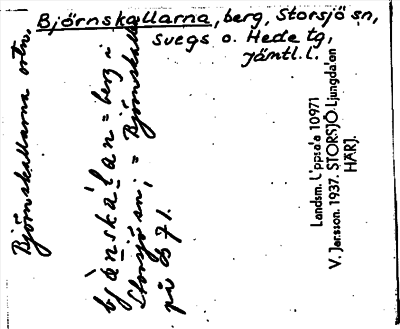 Björnskallarna, berg, Storsjö sn,
Svegs o. Hede tg,
Jämtl. l.
Björnskallarna ortn.
bjö̀nskàlan = berg i
Storsjö sn, = Björnskall
på B 71.
Landsm. Uppsala 10971
V. Jonsson. 1937. STORSJÖ. Ljungdalen
HÄRJ.